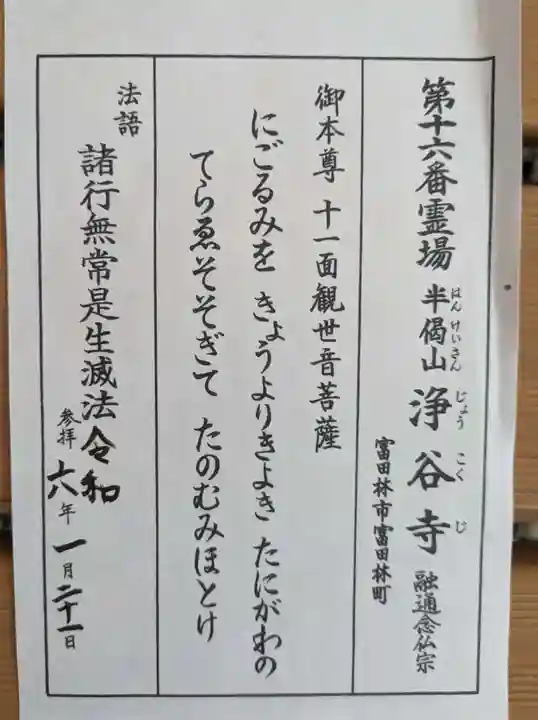 第十六番霊場 半偈山 浄谷寺 融通念仏宗
はんけいさん じょうこくじ
富田林市富田林町
御本尊 十一面観世音菩薩
にごるみを きょうよりきよき たにがわの
てらゑそそぎて たのむみほとけ
法語
諸行無常是生滅法
参拝 令和六年一月二十一日